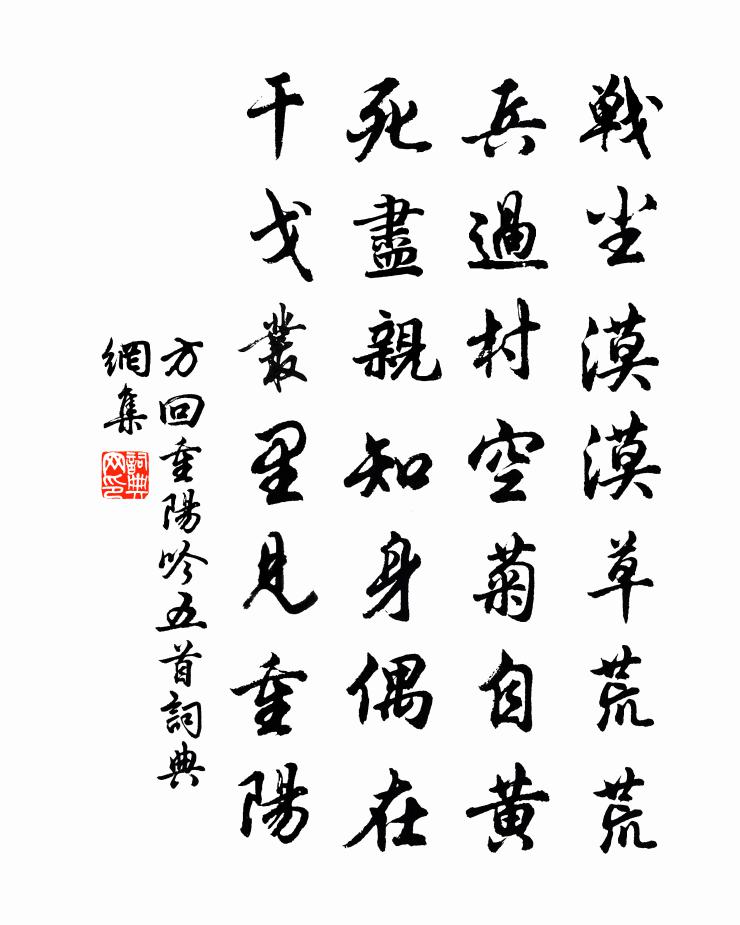 戦尘漠漠草荒荒
兵過村空菊自黄
死盡親知身偶在
干戈叢里見重陽
方回重陽吟五首詞典
網集
詞典
网印